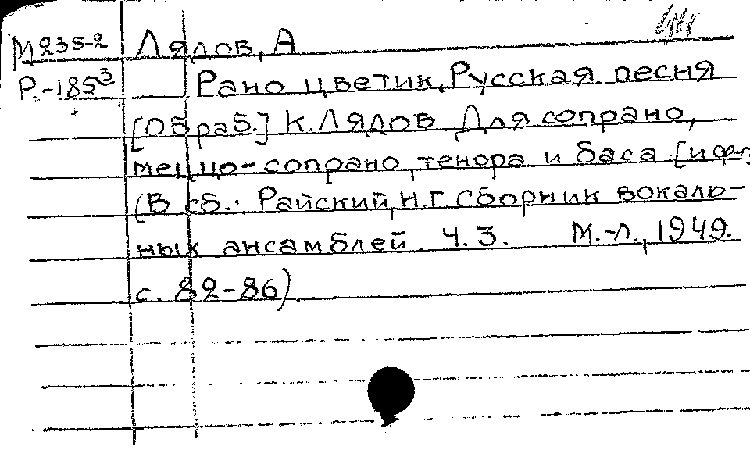 М235-2 Лядов, А
Р.-185³ Рано цветик, Русская песня
[Обраб.] К. Лядов Для сопрано,
меццо-сопрано, тенора и баса [и ф-
(В сб.: Райский, Н.Г Сборник вокаль-
ных ансамблей. Ч.3. М.-Л., 1949.
с. 82-86)